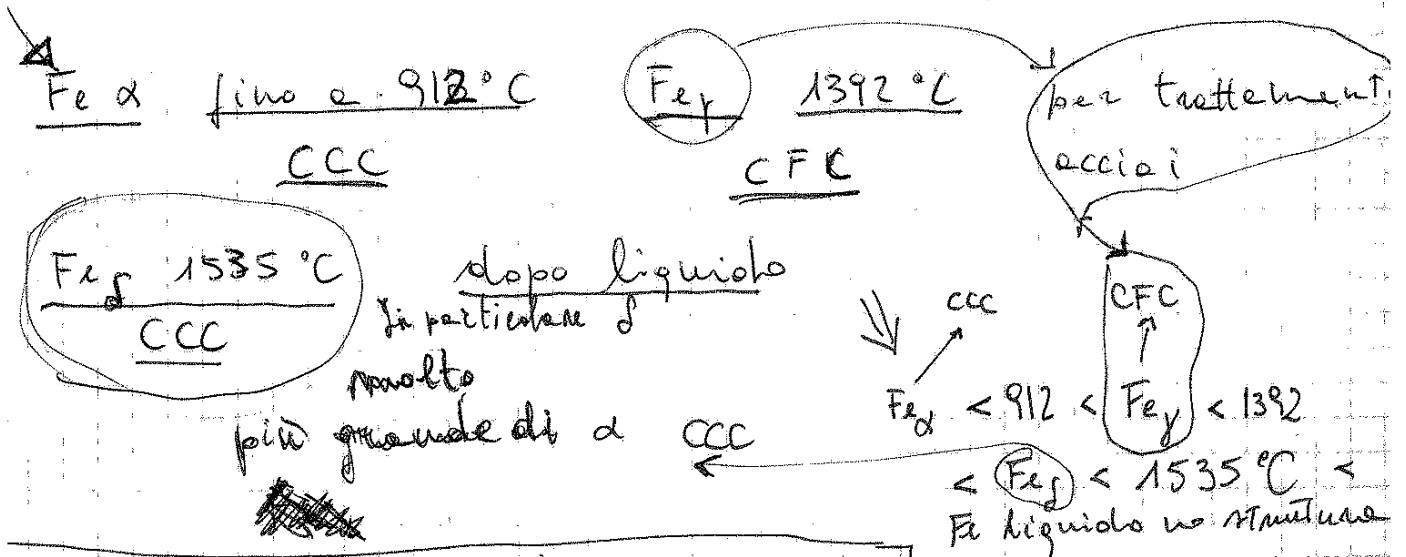 Fe α fino a 912°C Feγ 1392°C per trattamenti
CCC CFC acciai
Feδ 1535 °C dopo liquido
CCC In particolare δ
molto
più grande di α CCC
CCC CFC
Feα < 912 < Feγ < 1392
< Feδ < 1535 °C <
Fe liquido no struttura